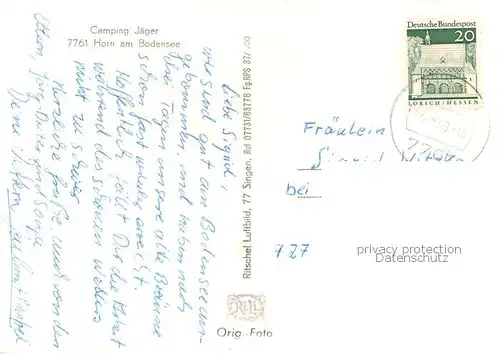 Camping Jäger
7761 Horn am Bodensee
Liebe Sigrid,
wir sind gut am Bodensee an-
gekommen, und haben nach
drei Tagen unsere alte Bräune
schon fast wieder erreicht.
Hoffentlich fällt Dir die Arbeit
während des schönen Wetters
nicht zu schwer
Herzliche Grüße, auch von den
Eltern, Jörg,
Deine
Ritschel Luftbild, 77 Singen, Ruf 07731/63778 Fg.RPS 37/
Deutsche Bundespost
20
LORSCH/HESSEN
Fräulein
bei
727
privacy protection
Datenschutz
Orig.-Foto